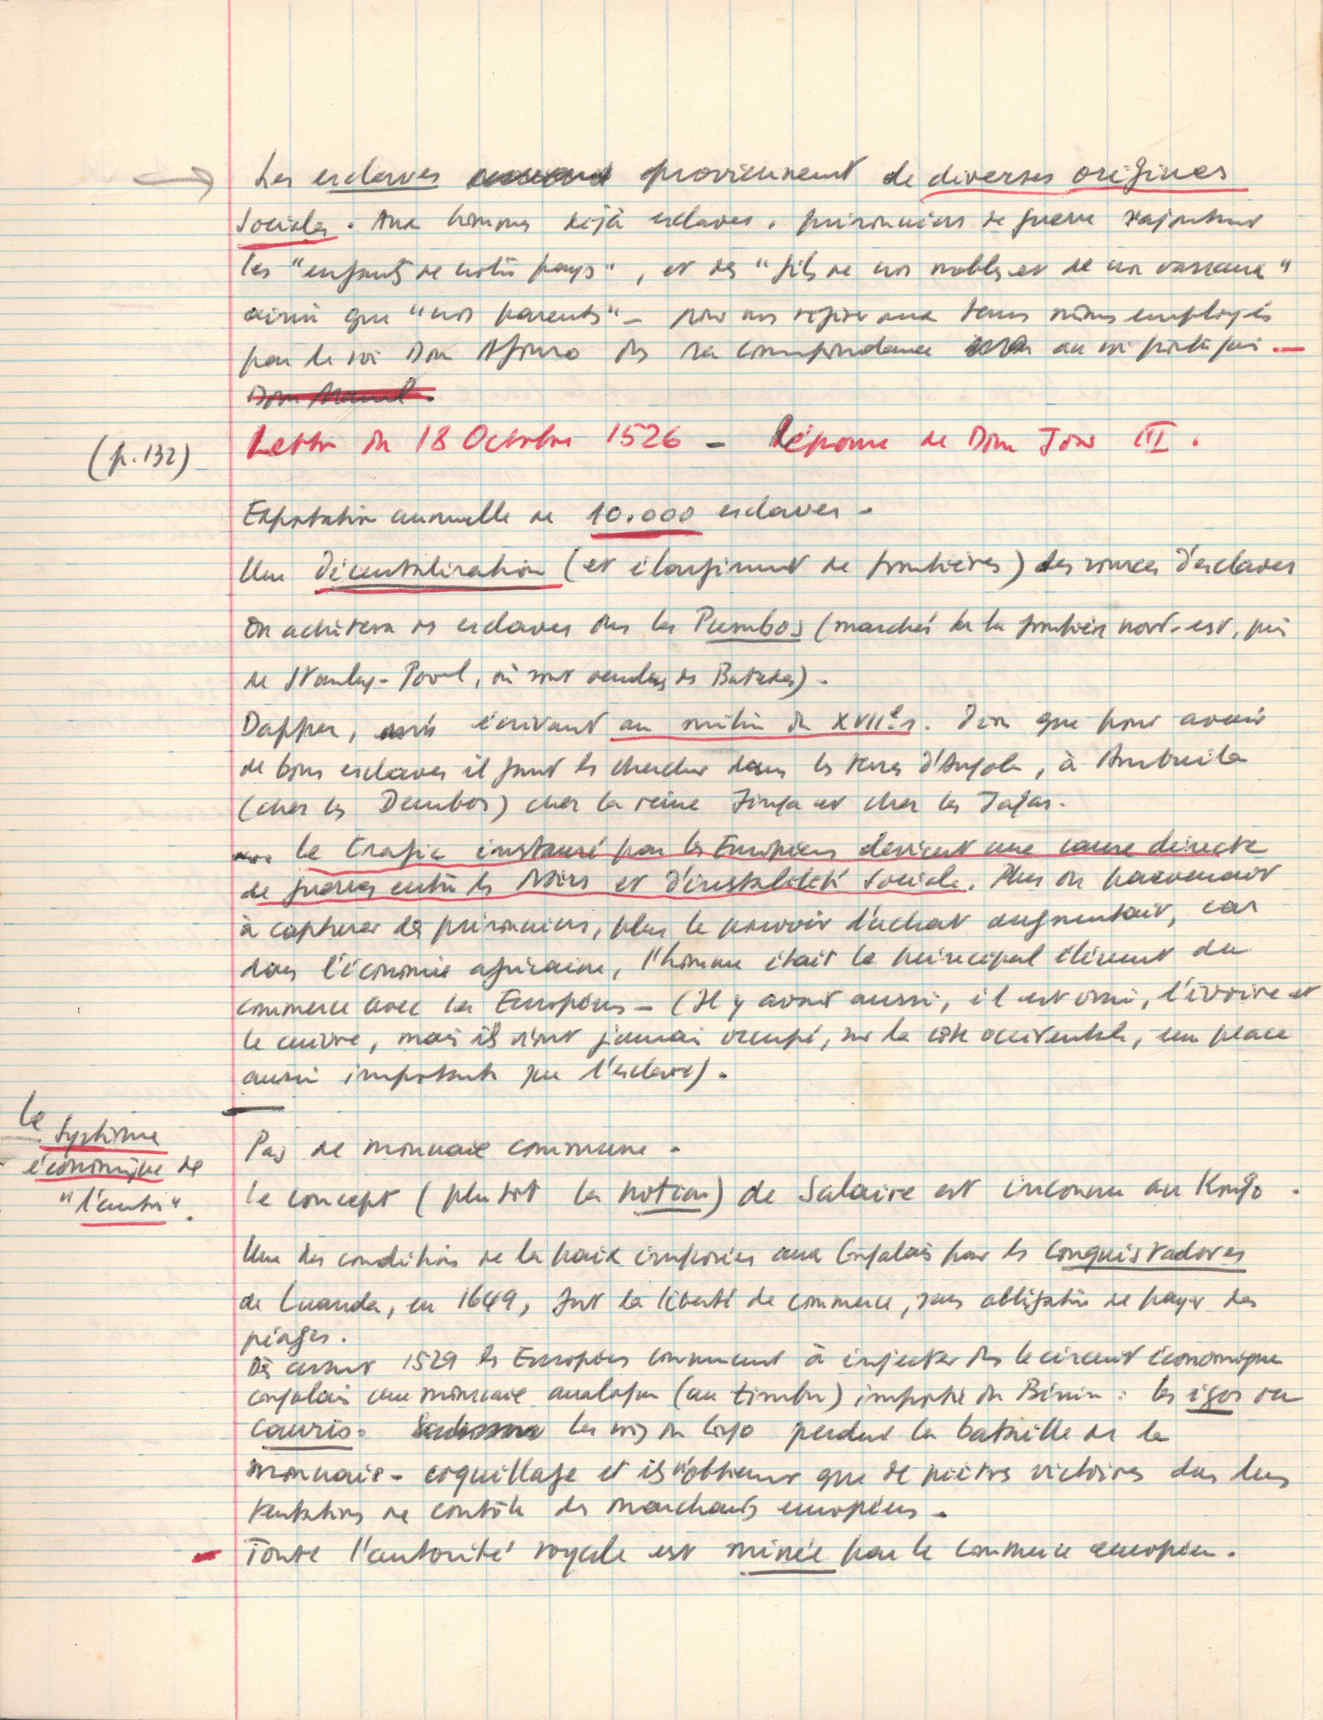 → Les esclaves proviennent de diverses origines
sociales. Aux hommes déjà esclaves, prisonniers de guerre s'ajoutent
les "enfants de notre pays", et des "fils de nos nobles et de nos vassaux"
ainsi que "nos parents" – pour nous référer aux termes mêmes employés
par le roi Dom Afonso ds sa correspondance au roi portugais –
Dom Manuel.
(p. 132) Lettre du 18 Octobre 1526 – Réponse de Dom Joao III.
Exportation annuelle de 10.000 esclaves –
Une décentralisation (et élargissement de frontières) des sources d'esclaves
On achètera des esclaves ds les Pumbos (marchés de la frontière nord-est, près
de Stanley-Pool, où sont vendus des Batekes) –
Dapper, écrivant au milieu du XVIIe s. dira que pour avoir
de bons esclaves il faut les chercher dans les terres d'Angola, à Ambuila
(chez les Dembos) chez la reine Jinga et chez les Jagas.
le trafic instauré par les Européens devient une cause directe
de guerres entre les Noirs et d'instabilité sociale. Plus on parvenait
à capturer des prisonniers, plus le pouvoir d'achat augmentait, car
dans l'économie africaine, l'homme était le principal élément du
commerce avec les Européens – (Il y avait aussi, il est vrai, l'ivoire et
le cuivre, mais ils n'ont jamais occupé, sur la côte occidentale, une place
aussi importante que l'esclave).
Le système
économique de
"l'autre".
Pas de monnaie commune –
Le concept (plutôt la notion) de Salaire est inconnu au Kongo.
Une des conditions de la paix imposées aux Congolais par les Conquistadores
de Luanda, en 1649, fut la liberté de commerce, sans obligation de payer des
péages.
Dès avant 1529 les Européens commencent à injecter ds le circuit économique
congolais une monnaie analogue (au timbu) importée du Bénin : les igos ou
cauris. Les rois du Congo perdent la bataille de la
monnaie-coquillage et ils n'obtiennent que de piètres victoires dans leurs
tentatives de contrôle des marchands européens –
– Toute l'autorité royale est minée par le commerce européen.